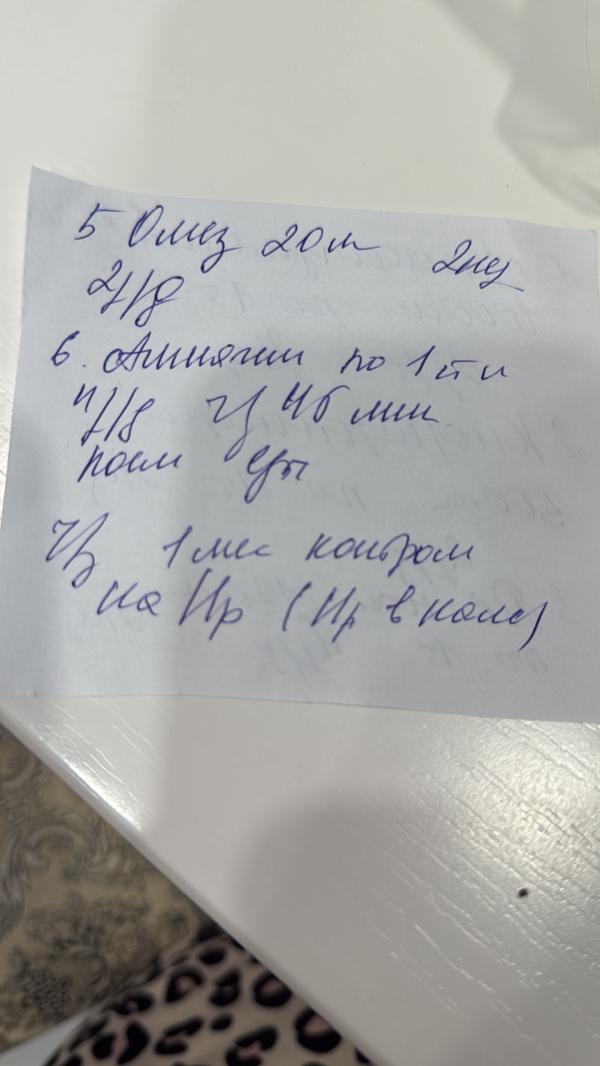 5 Омез 20 м 2 нед
2 р/д
6. Алмагель по 1 п
4 р/д ч/з 45 мин
посл еды
ч/з 1 мес контрол
на Hp (Hp в кале)